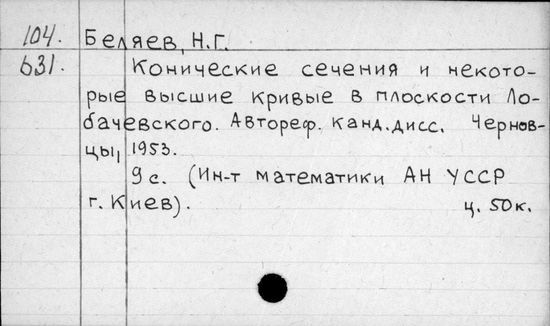 104. Беляев, Н.Г.
631. Конические сечения и некото-
рые высшие кривые в плоскости Ло-
бачевского. Автореф. канд. дисс. Чернов-
цы, 1953.
9 с. (Ин-т математики АН УССР
г. Киев). ц. 50к.